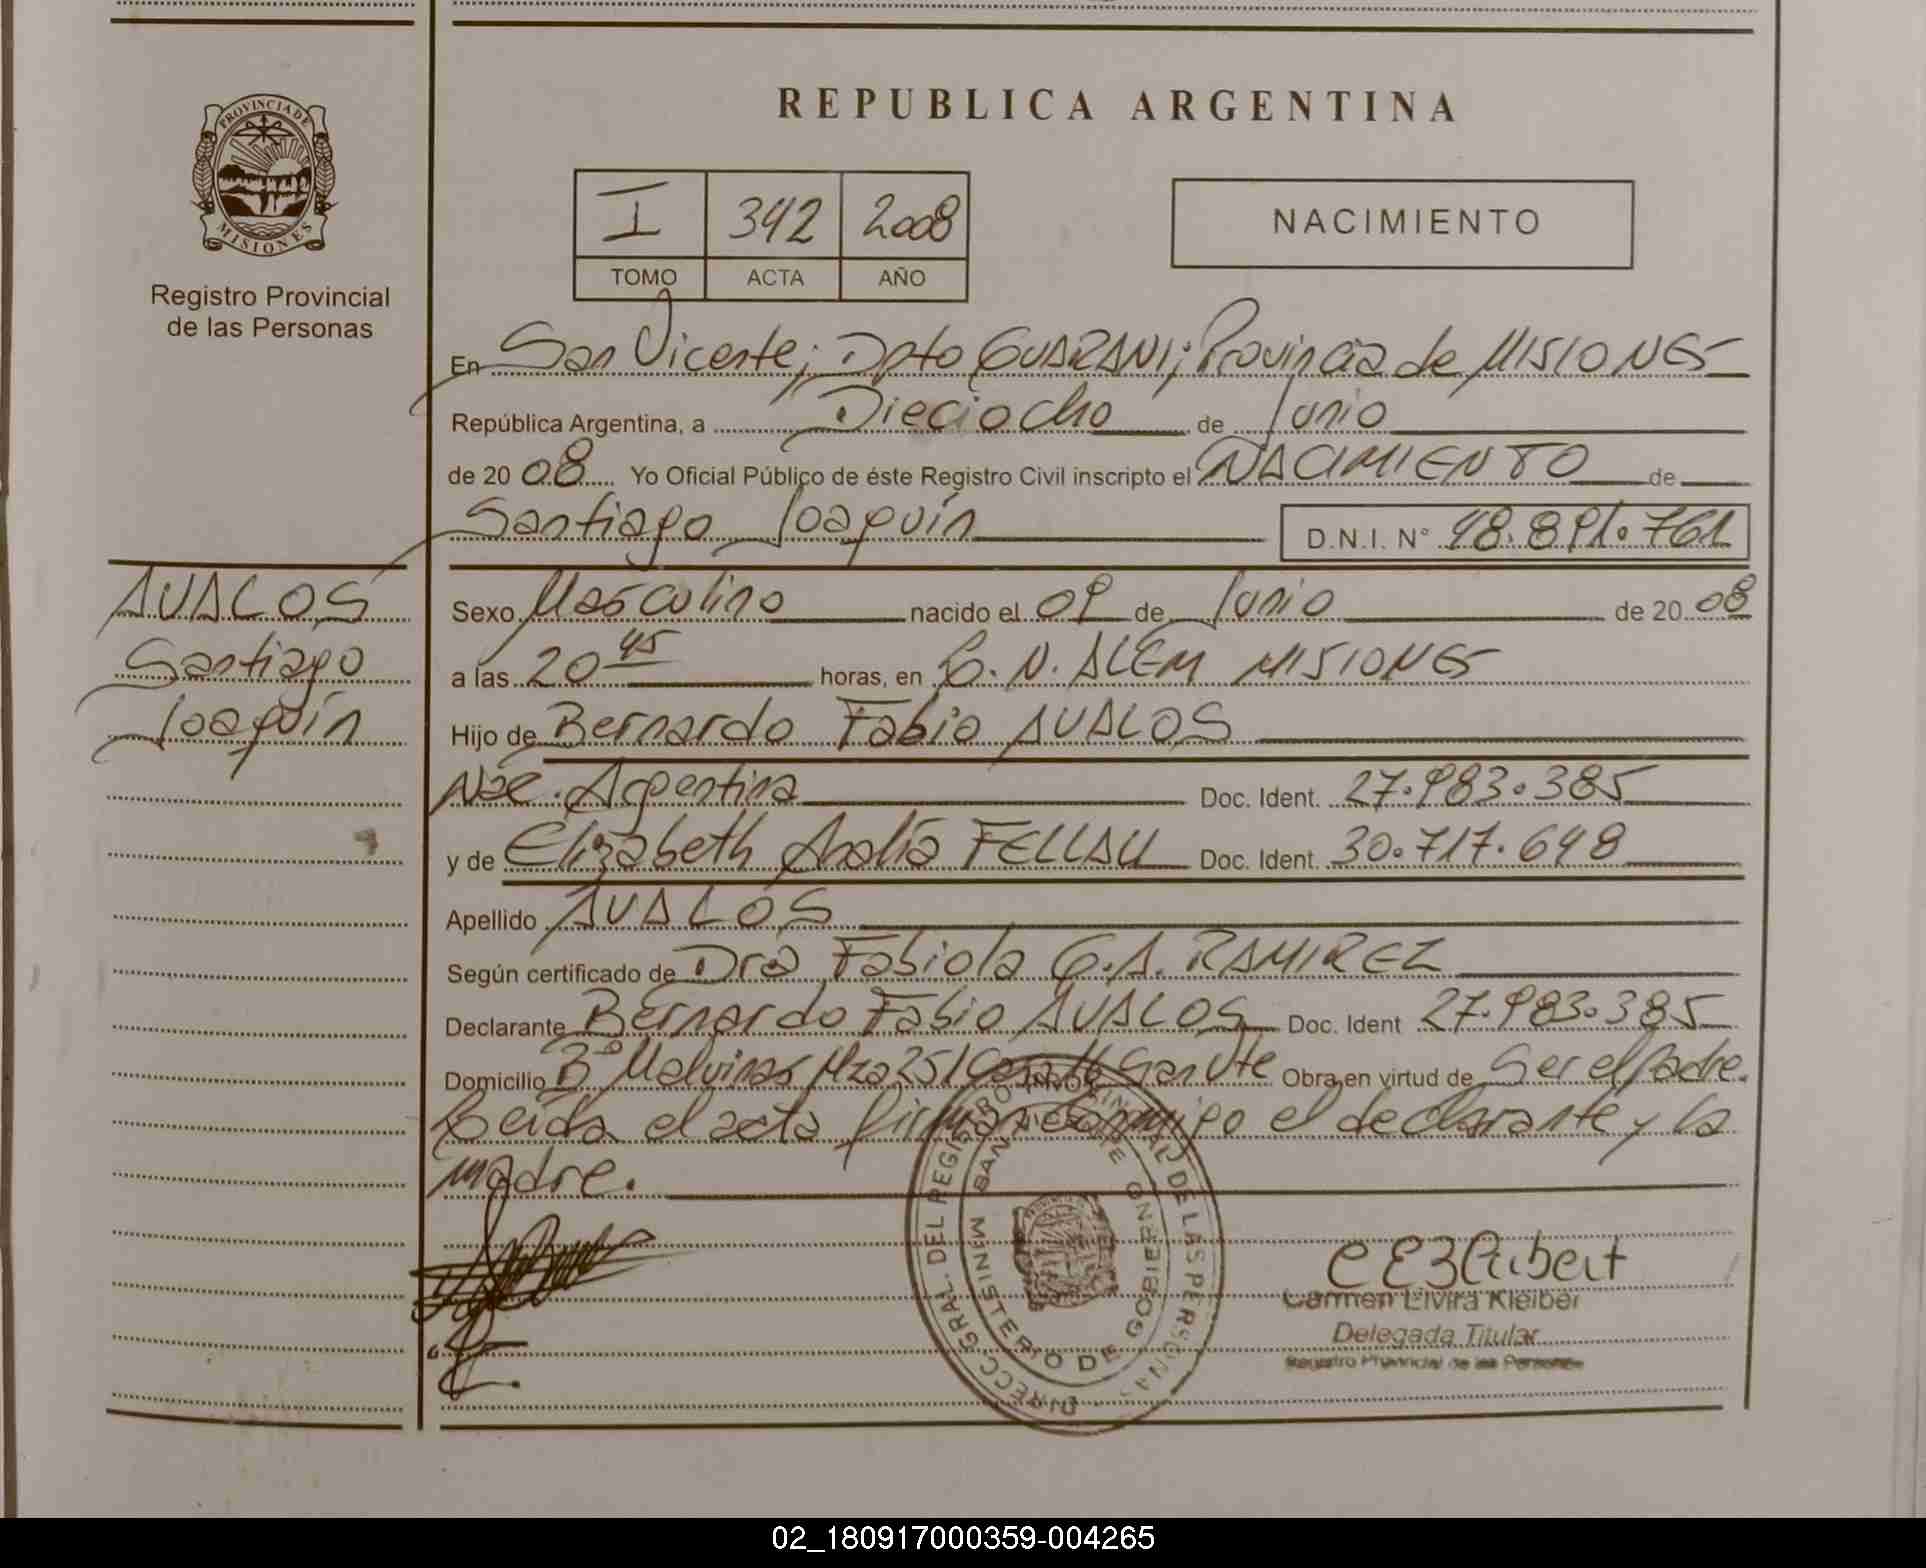 PROVINCIA DE
MISIONES
Registro Provincial
de las Personas
REPUBLICA ARGENTINA
I 342 2008
TOMO ACTA AÑO
NACIMIENTO
En San Vicente; Dpto GUARANI; Provincia de MISIONES
República Argentina, a Dieciocho de Junio
de 20 08 Yo Oficial Público de éste Registro Civil inscripto el NACIMIENTO de
Santiago Joaquín D.N.I. N° 48.891.761
AVALOS
Santiago
Joaquín
Sexo Masculino nacido el 09 de Junio de 20 08
a las 20 45 horas, en L. N. ALEM MISIONES
Hijo de Bernardo Fabio AVALOS
Nac. Argentina Doc. Ident. 27.983.385
y de Elizabeth Analía FELLAU Doc. Ident. 30.717.648
Apellido AVALOS
Según certificado de Dra Fabiola G.A. RAMIREZ
Declarante Bernardo Fabio AVALOS Doc. Ident 27.983.385
Domicilio B° Malvinas Mza 25/Casa San Vte Obra en virtud de Ser el padre.
Leída el acta firman conmigo el declarante y la
madre.
DIRECC. GRAL DEL REGISTRO PROVINCIAL DE LAS PERSONAS
MINISTERIO DE GOBIERNO
SAN VICENTE
Carmen Elvira Kleiber
Delegada Titular
Registro Provincial de las Personas
02_180917000359-004265